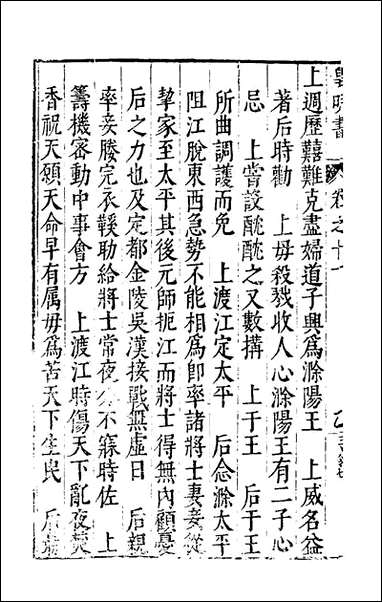 上週歷囏難克盡婦道子興爲滁陽王　上威名益
著后時勸　上毋殺戮收人心滁陽王有二子心
忌　上嘗設酖酖之又數搆　上于王　后于王
所曲調護而免　上渡江定太平　后念滁太平
阻江脫東西急勢不能相爲卽率諸將士妻妾從
挈家至太平其後元師扼江而將士得無內顧憂
后之力也及定都金陵吳漢接戰無虛日　后親
率妾媵完衣鞵助給將士常夜分不寐時佐　上
籌機密動中事會方　上渡江時傷天下亂夜焚
香祝天願天命早有属毋爲苦天下生民　后